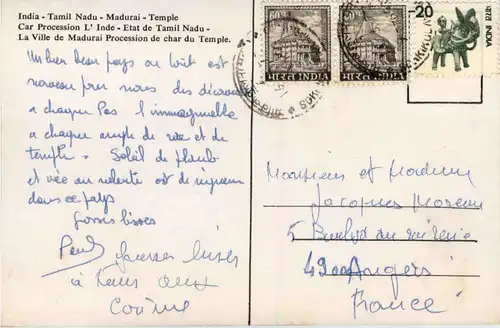 India - Tamil Nadu - Madurai - Temple
Car Procession L' Inde - Etat de Tamil Nadu -
La Ville de Madurai Procession de char du Temple.
Un bien beau pays où tout est
nouveau pour nous des
à chaque pas l'inimaginable
à chaque angle de rue et de
temple. Soleil de plomb
et est de rigueur
dans ce pays
Grosses bises
Paul grosses bises
à tous deux
Corinne
60
भारत INDIA
60
भारत INDIA
20
भारत INDIA
Monsieur et Madame
Jacques Moreau
5
49000 Angers
France